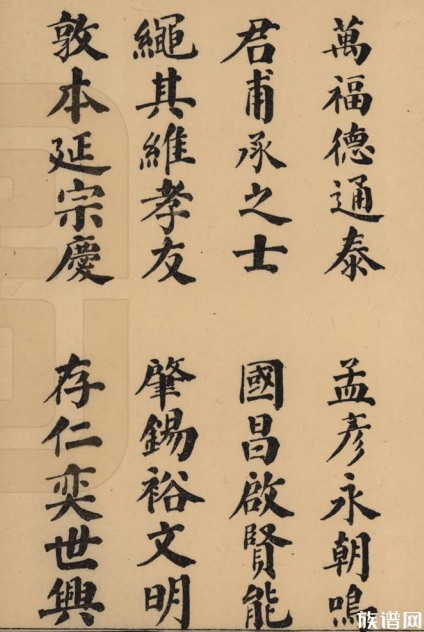 萬福德通泰
孟彥永朝鳴
君甫承之士
國昌啟賢能
繩其維孝友
肇錫裕文明
敦本延宗慶
存仁奕世興
族谱网